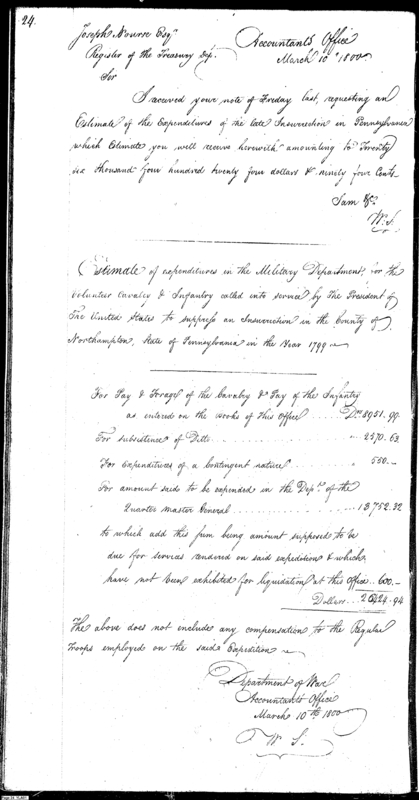 24.
Joseph Nourse Esqr
Accountants Office
Register of the Treasury Dep.
March 10th 1800
Sir
I received your note of Friday last, requesting an
Estimate of the Expenditures of the late Insurrection in Pennsylvania
which Estimate you will receive herewith amounting to Twenty
six thousand four hundred twenty four dollars & ninety four Cents
I am &c.
W. S.
Estimate of expenditures in the Military Department, for the
Volunteer Cavalry & Infantry called into service by The President of
The United States to suppress an Insurrection in the County of
Northampton, State of Pennsylvania in the Year 1799
For Pay & Forage of the Cavalry & Pay of the Infantry
as entered on the books of this Office ..... Drs. 8951.99
For subsistence of Ditto ..... 2570.63
For expenditures of a Contingent nature ..... 550.—
For amount said to be expended in the Dept. of the
Quarter Master General ..... 13752.32
to which add this sum being amount supposed to be
due for services rendered on said expedition & which
have not been exhibited for liquidation at this Office .. 600.—
Dollars ... 26424.94
The above does not include any compensation to the Regular
Troops employed on the said Expedition
Department of War
Accountants Office
March 10th 1800
W. S.